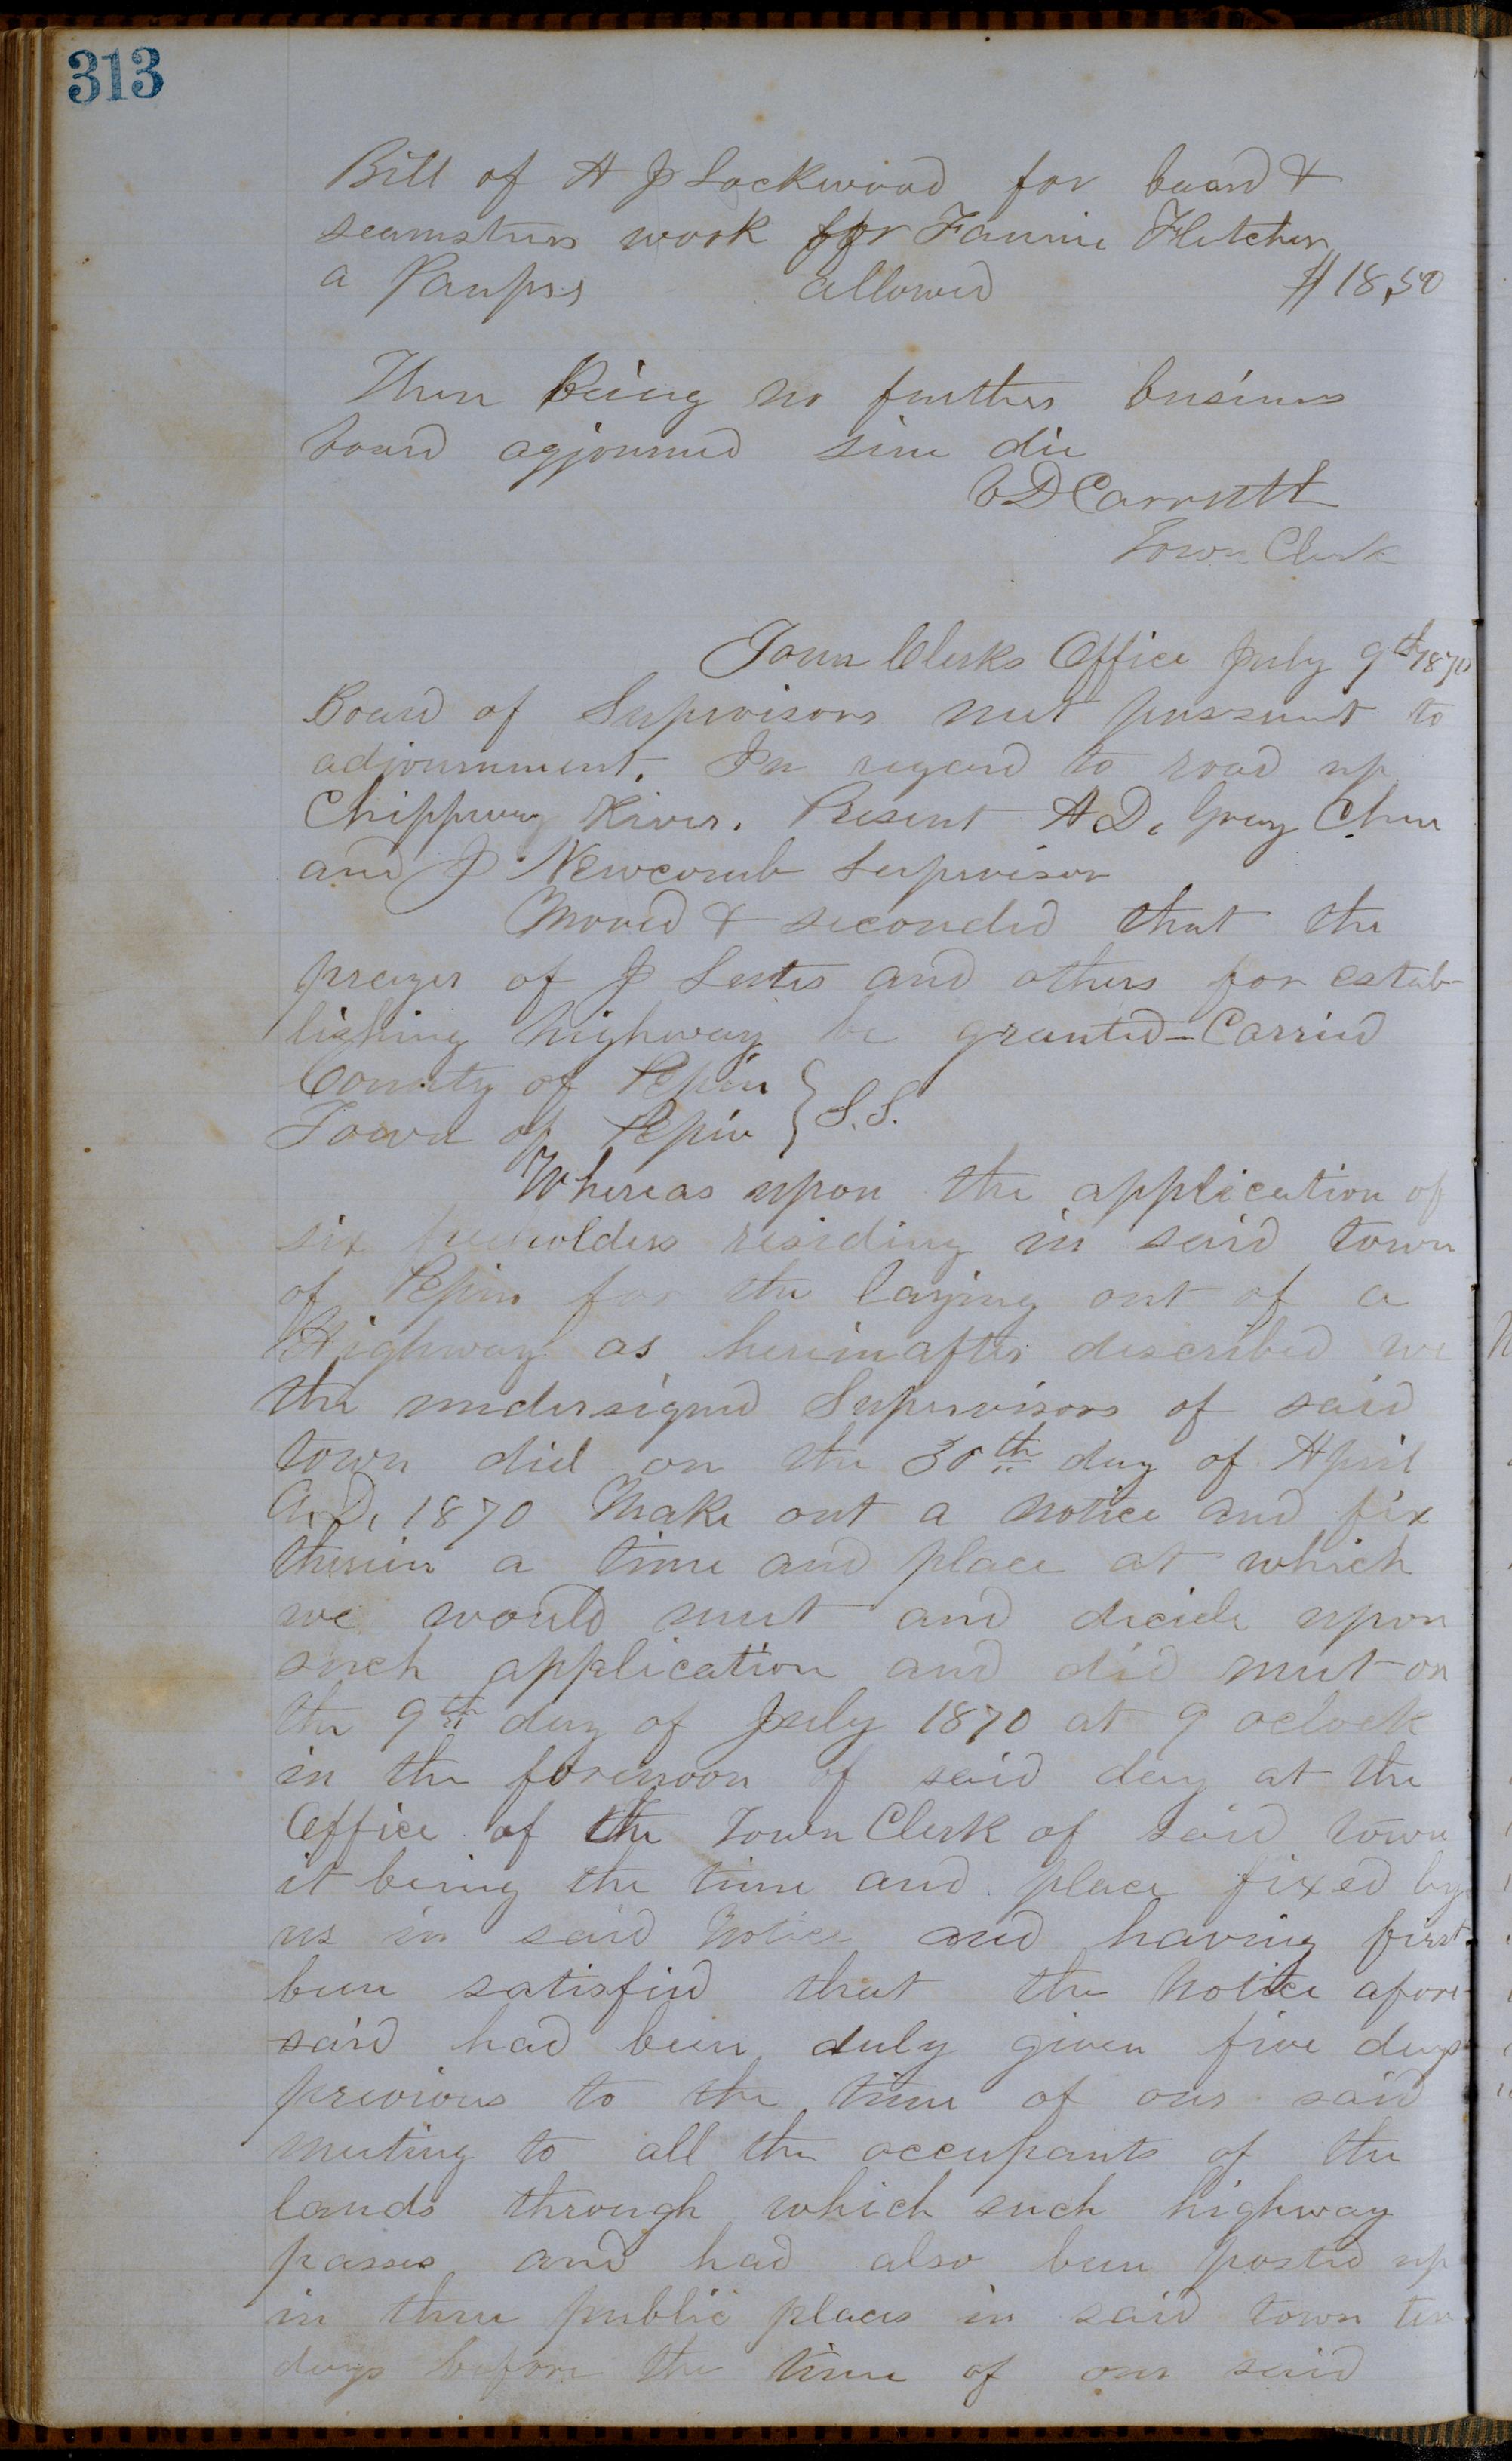 313
Bill of A J Lockwood for board &
seamstress work for Fannie Fletcher
a Pauper allowed $18,50
There being no further business
board agjourned sine die
V D Carruth
Town Clerk
Town Clerks Office July 9th 1870
Board of Supervisors met pursuant to
adjournment. In regard to road up
Chippway River. Present A D. Gray Chm
and J Newcomb Supervisor
Moved & seconded that the
prayer of J and others for estab-
lishing highway be granted - Carried
County of Pepin } S.S.
Town of Pepin
Whereas upon the application of
six freeholders residing in said town
of Pepin for the laying out of a
Highway as hereinafter described we
the undersigned Supervisors of said
town did on the 30th day of April
A.D. 1870 Make out a notice and fix
therein a time and place at which
we would meet and decide upon
such application and did meet on
the 9th day of July 1870 at 9 oclock
in the forenoon of said day at the
Office of the Town Clerk of said town
it being the time and place fixed by
us in said Notice and having first
been satisfied that the Notice afore-
said had been duly given five days
previous to the time of our said
meeting to all the occupants of the
lands through which such highway
passes and had also been posted up
in three public places in said town ten
days before the time of our said